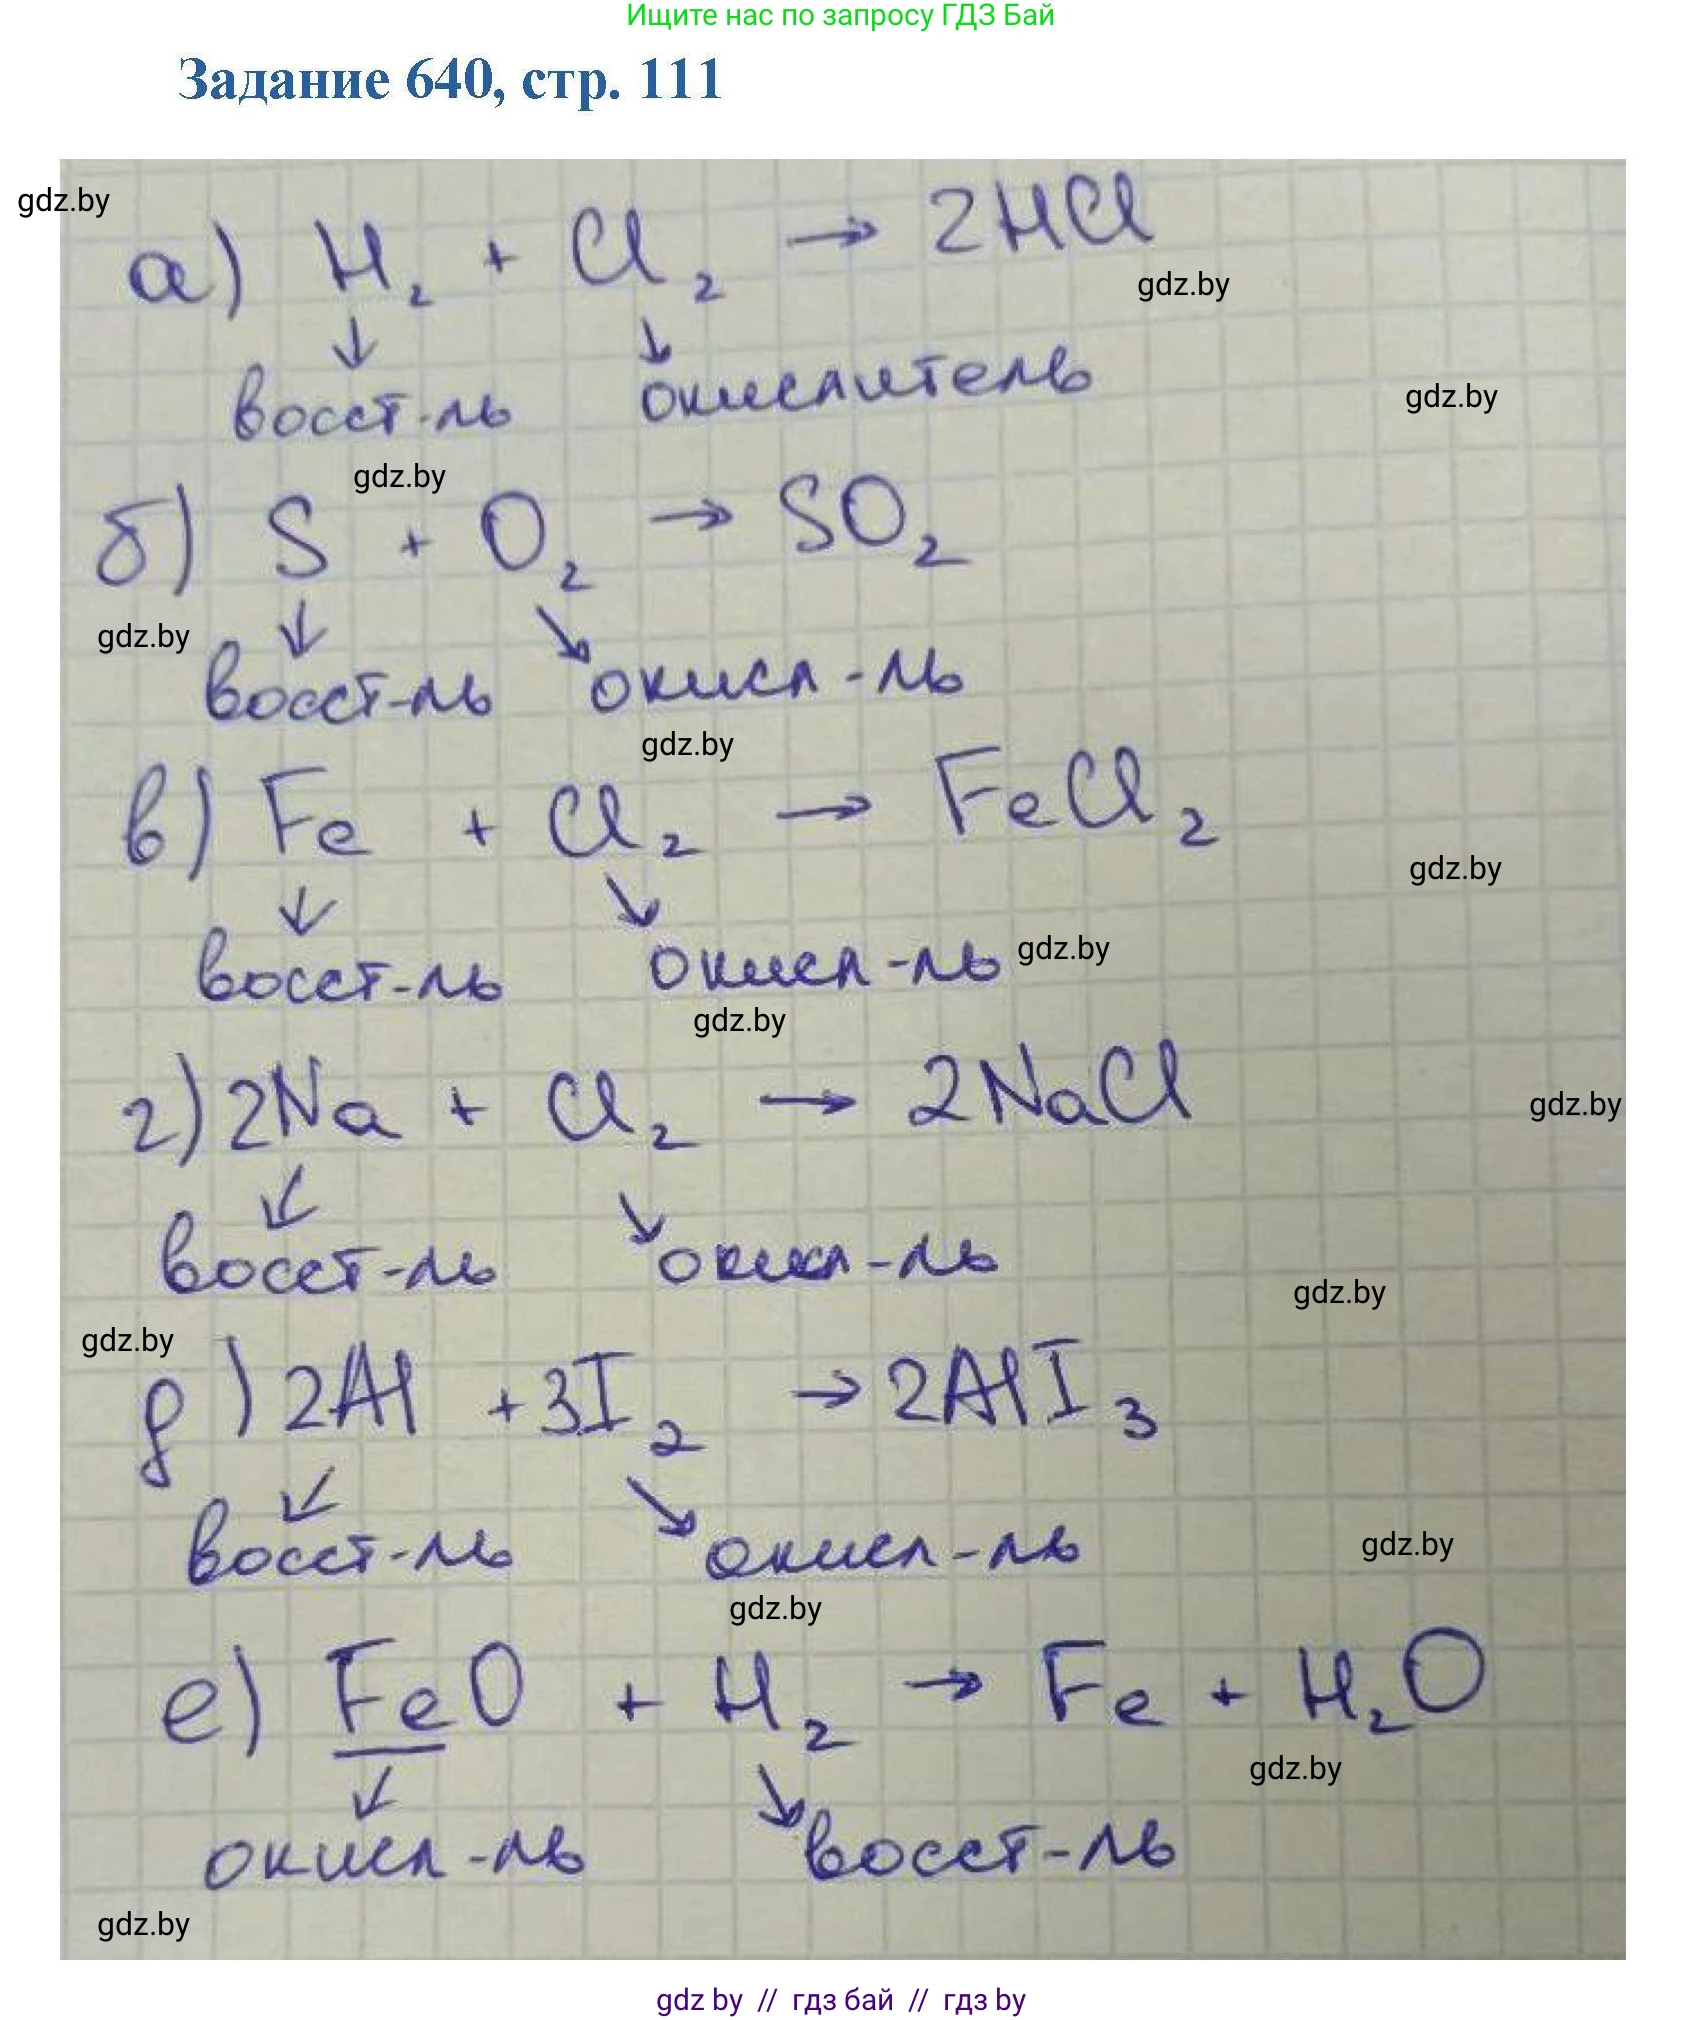 Ищите нас по запросу ГДЗ Бай
Задание 640, стр. 111
gdz.by
а) H₂ + Cl₂ → 2HCl
gdz.by
↓ ↘
восст-ль окислитель
gdz.by
gdz.by
б) S + O₂ → SO₂
↓ ↘
gdz.by
восст-ль окисл-ль
gdz.by
в) Fe + Cl₂ → FeCl₂
gdz.by
↓ ↘
восст-ль окисл-ль gdz.by
gdz.by
г) 2Na + Cl₂ → 2NaCl
gdz.by
↙ ↘
восст-ль окисл-ль
gdz.by
gdz.by
д) 2Al + 3I₂ → 2AlI₃
↙ ↘
восст-ль окисл-ль
gdz.by
gdz.by
е) FeO + H₂ → Fe + H₂O
gdz.by
↙ ↘
окисл-ль восст-ль
gdz.by
gdz by // гдз бай // гдз by